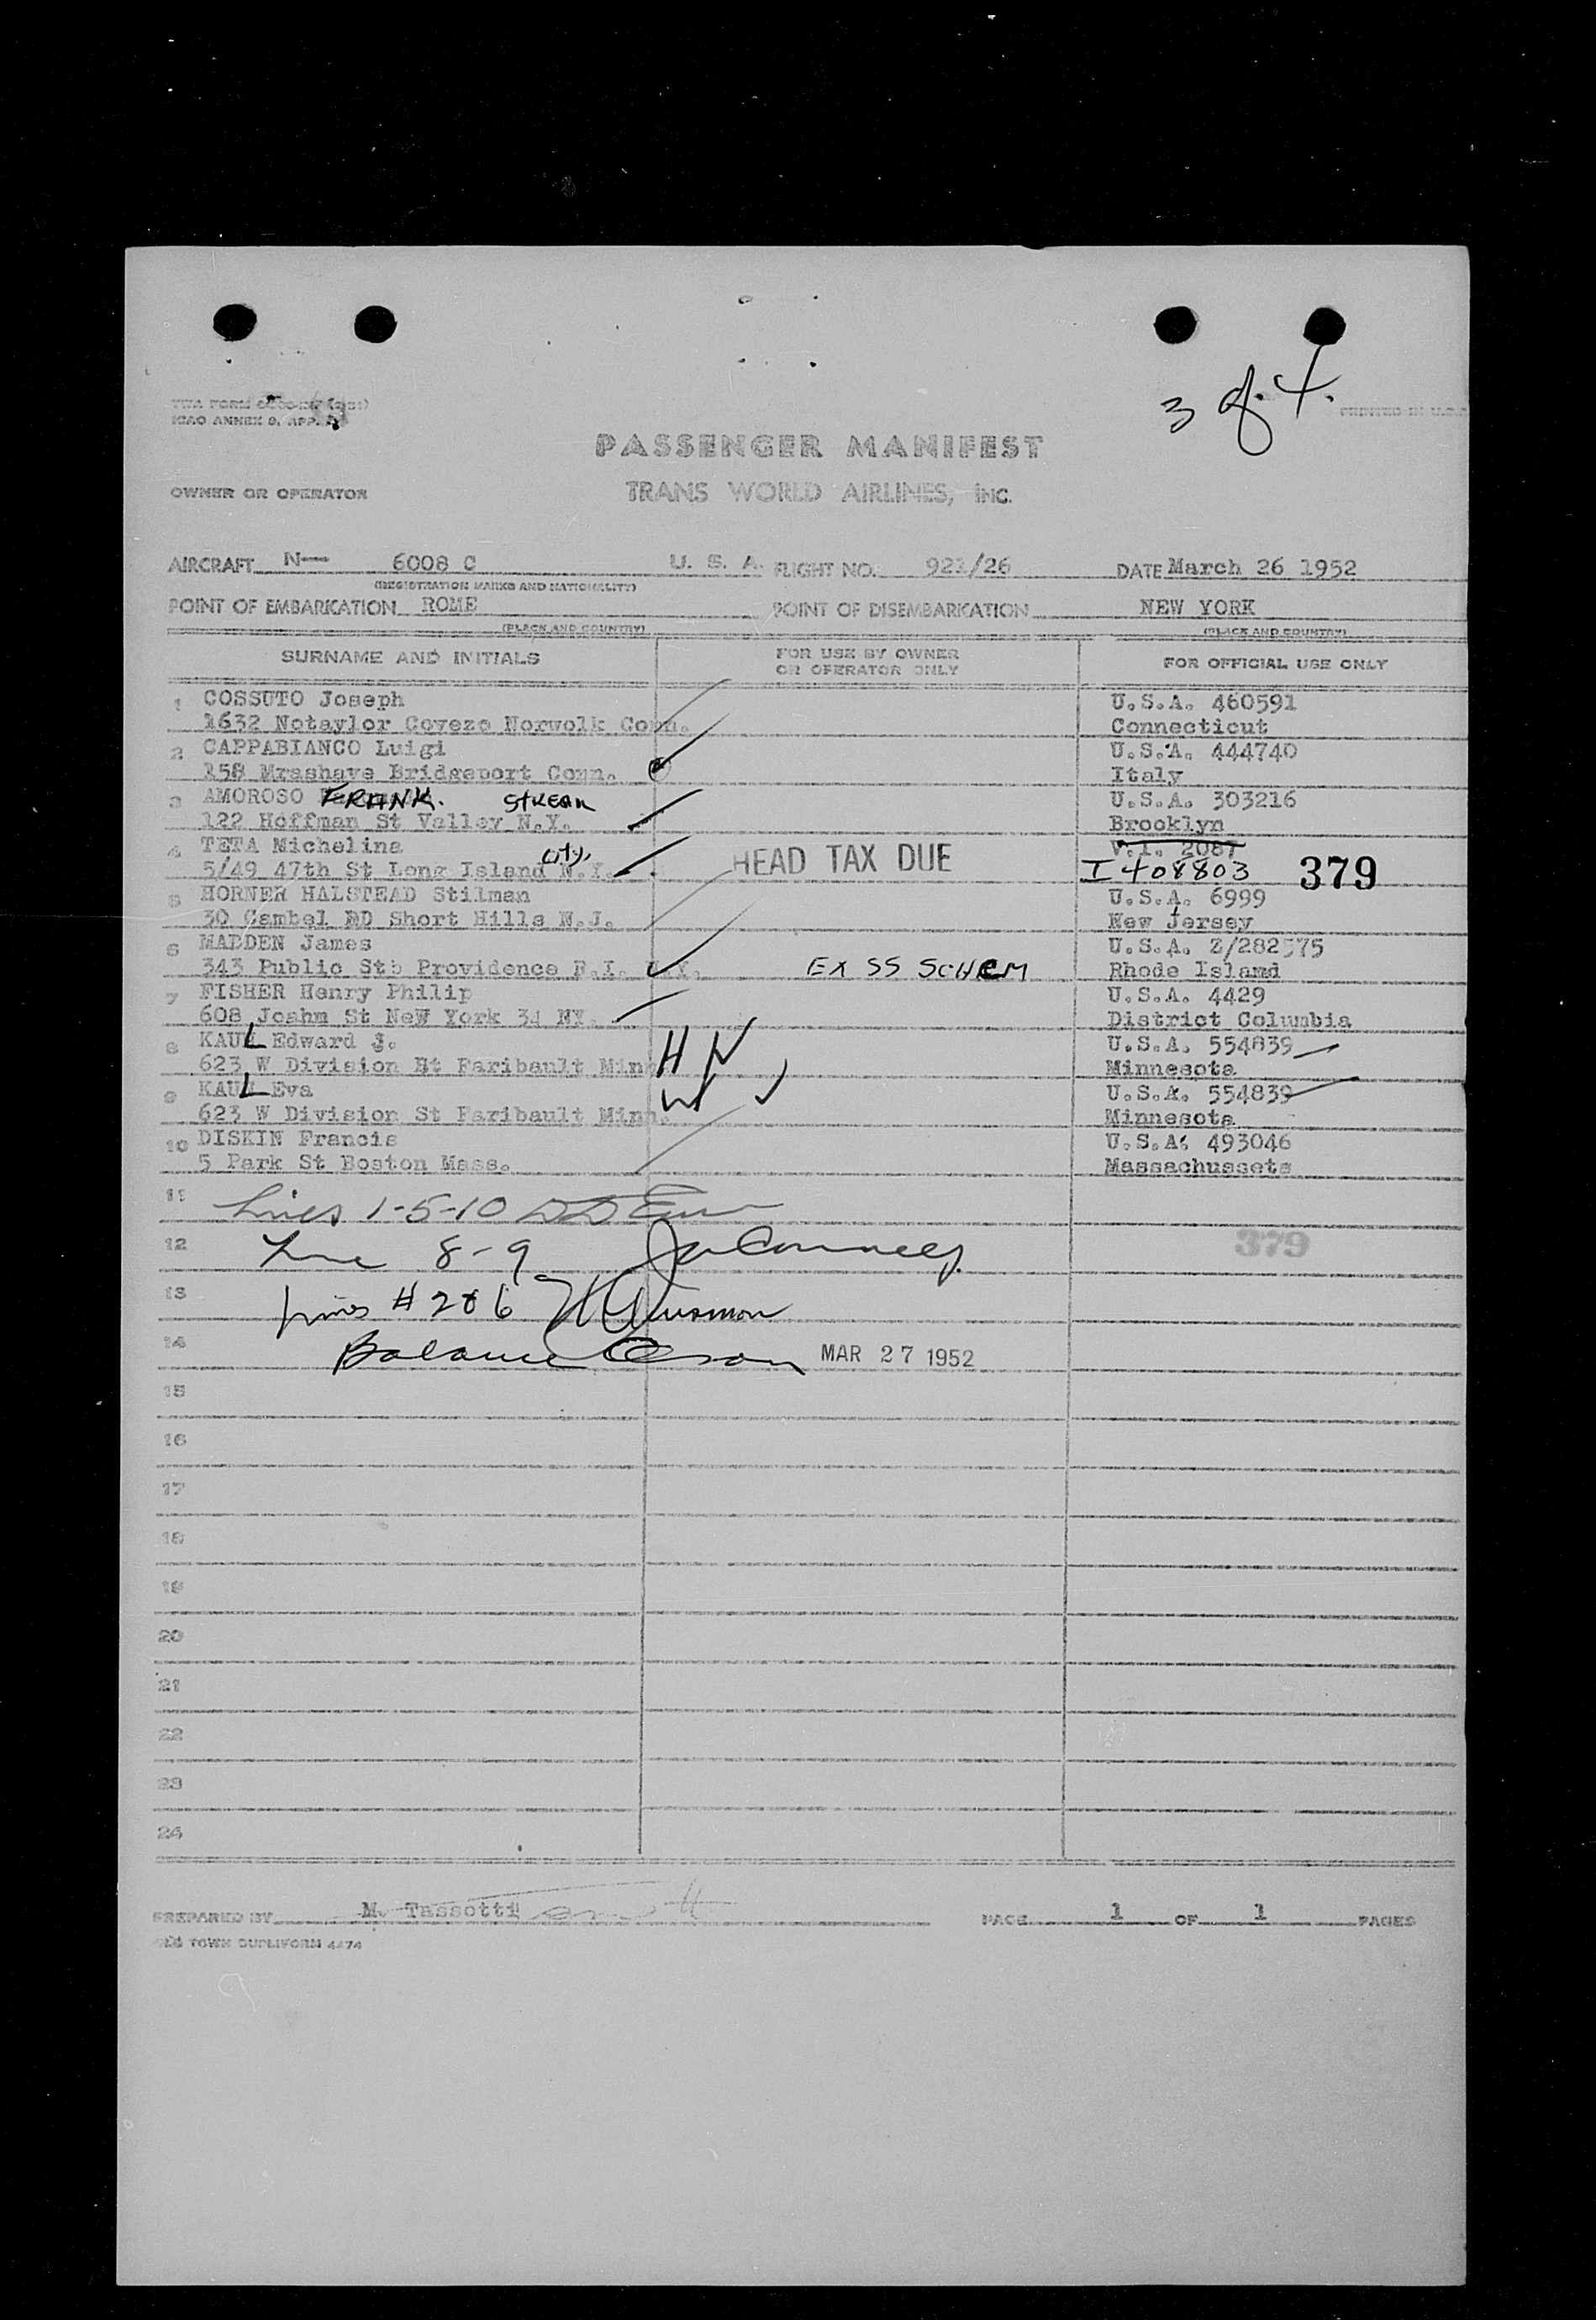 3 of 4.
ICAO ANNEX 9, APP.
PRINTED IN U.S.A.
PASSENGER MANIFEST
OWNER OR OPERATOR TRANS WORLD AIRLINES, INC.
AIRCRAFT N— 6008 C U. S. A. FLIGHT NO. 921/26 DATE March 26 1952
(REGISTRATION MARKS AND NATIONALITY)
POINT OF EMBARKATION ROME POINT OF DISEMBARKATION NEW YORK
(PLACE AND COUNTRY) (PLACE AND COUNTRY)
SURNAME AND INITIALS FOR USE BY OWNER OR OPERATOR ONLY FOR OFFICIAL USE ONLY
1 COSSUTO Joseph U.S.A. 460591
1632 Notaylor Coveze Norwolk Conn. Connecticut
2 CAPPABIANCO Luigi U.S.A. 444740
158 Mrashave Bridgeport Conn. Italy
3 AMOROSO FRANK. STREAM U.S.A. 303216
122 Hoffman St Valley N.Y. Brooklyn
4 TETA Michelina V.I. 2087
5/49 47th St Long Island City, N.Y. HEAD TAX DUE I 408803 379
5 HORNER HALSTEAD Stilman U.S.A. 6999
30 Cambel RD Short Hills N.J. New Jersey
6 MADDEN James U.S.A. Z/282575
343 Public Stb Providence R.I. N.Y. EX SS SCHEM Rhode Island
7 FISHER Henry Philip U.S.A. 4429
608 Joahm St NeW York 34 NY. District Columbia
8 KAUL Edward J. H U.S.A. 554839
623 W Division St Faribault Minn. Minnesota
9 KAUL Eva W U.S.A. 554839
623 W Division St Faribault Minn. Minnesota
10 DISKIN Francis U.S.A. 493046
5 Park St Boston Mass. Massachussets
11 Lines 1-5-10
12 Line 8-9 379
13 Lines # 2 & 6
14 Balance MAR 27 1952
15
16
17
18
19
20
21
22
23
24
PREPARED BY M. Tassotti PAGE 1 OF 1 PAGES
TOWN DUPLIFORM 4474